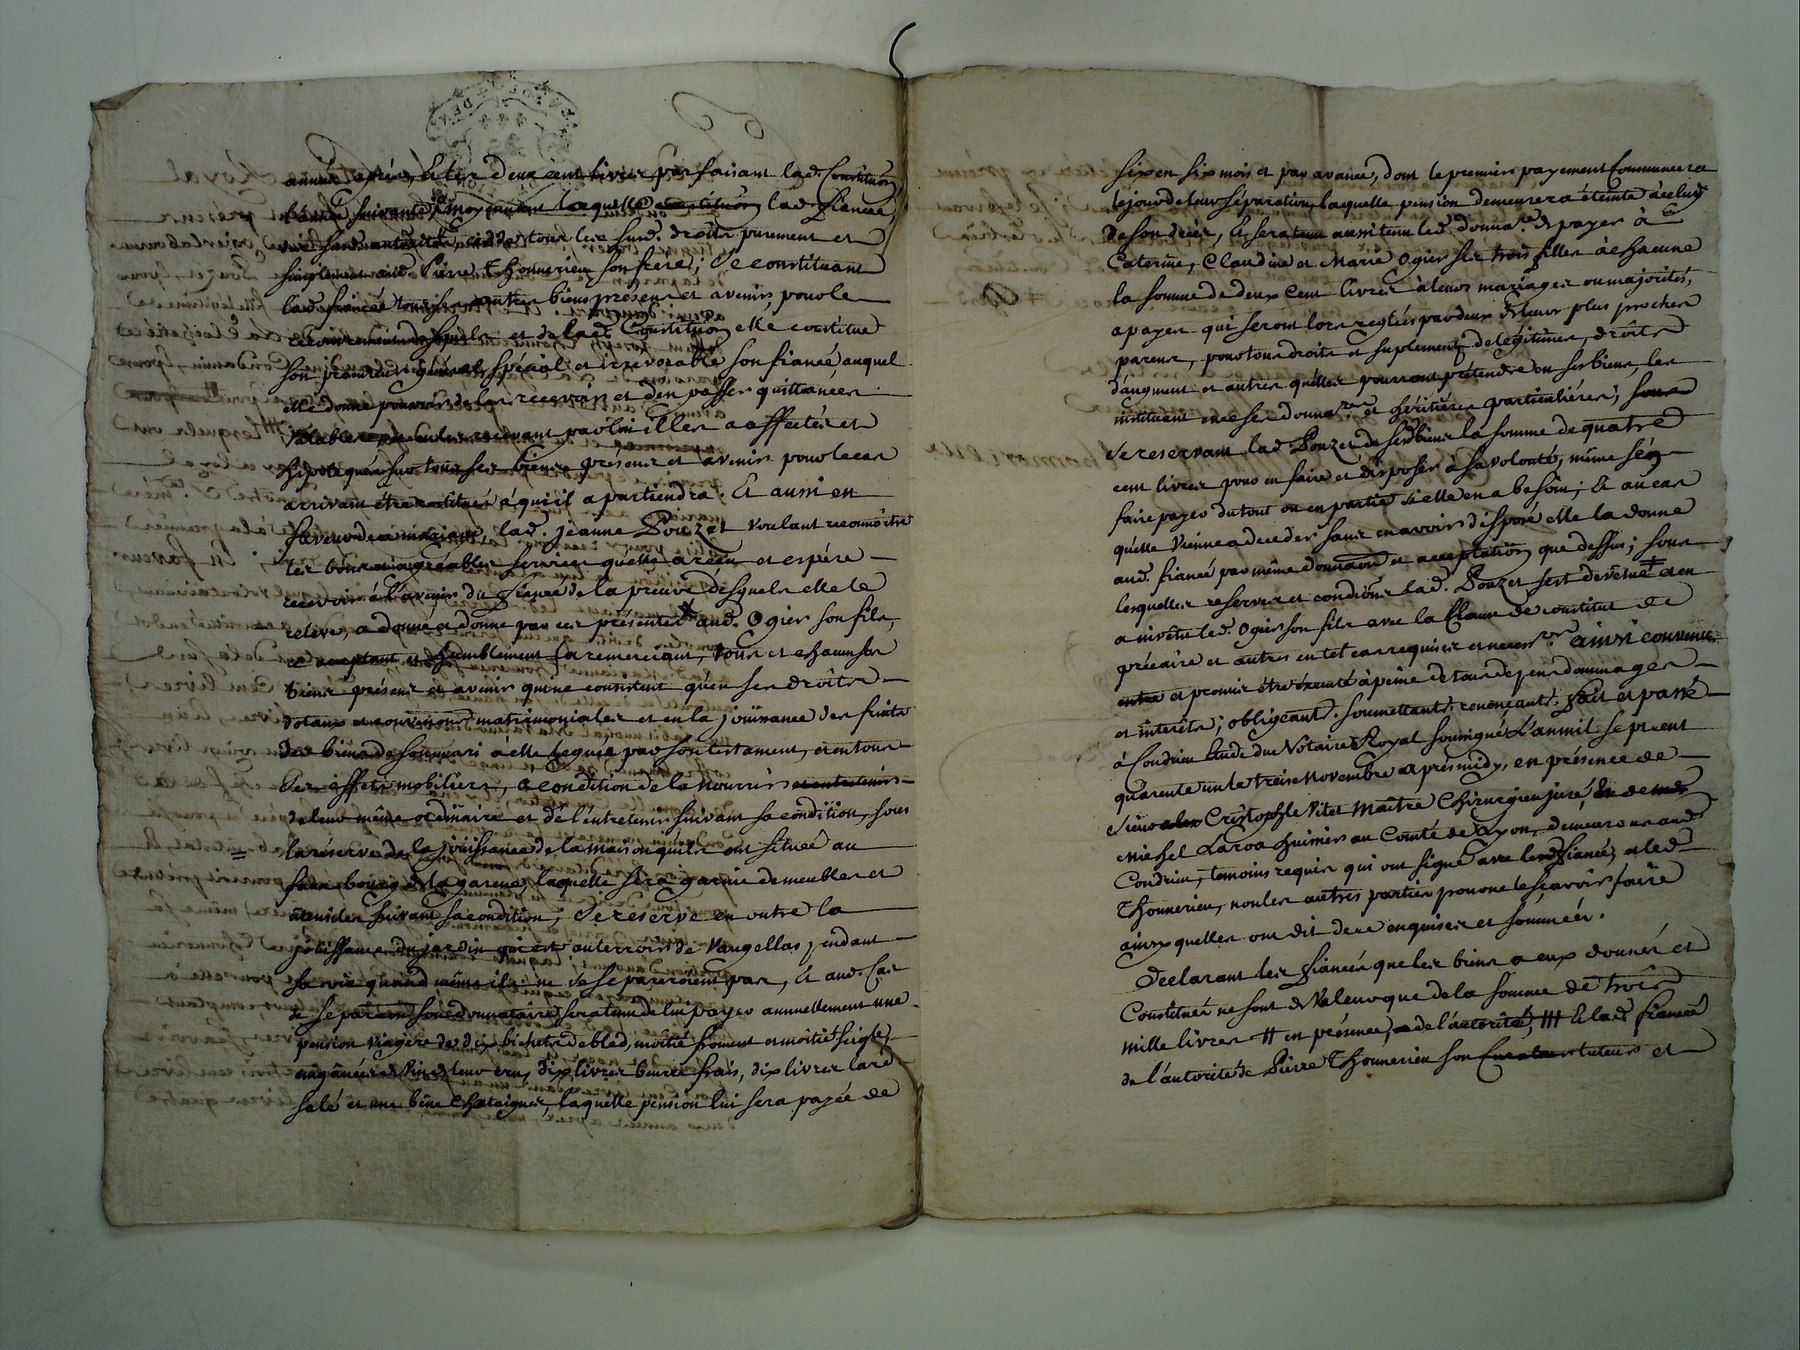 année après, et les deux cent livres parfaisant lad. Constitution
l'année suivante, moyennant laquelle constitution lad. fiancée
simplement aud. Pierre Thonnerieu son frere; se constituant
lad. fiancée tous ses autres biens présens et avenirs, pour le
recouvrement desquels et de lad. Constitution elle constitue
son procureur général, spécial et irrevocable son fiancé, auquel
elle donne pouvoir de les recevoir et d'en passer quittances
valables
hipotequés sur tous ses biens présens et avenirs pour le cas
arrivant être restitués à qui il apartiendra. Et aussi en
faveur de ce mariage, lad. jeanne Pouzet voulant reconnoitre
les bons et agréables services qu'elle a reçu et espére
recevoir à l'avenir du fiancé de la preuve desquels elle le
reléve, a donné et donne par ces présentes aud. Ogier son fils,
ce acceptant et humblement la remerciant, tous et chacuns ses
biens présens et avenirs qui ne consistent qu'en ses droits
dotaux et conventions matrimoniales et en la joüissance des fruits
des biens de son mari à elle leguée par son testament, et en tous
ses effets mobiliers, a condition de la nourrir et entretenir
de leur même ordinaire et de l'entretenir suivant sa condition, sous
la réserve de la joüissance de la maison qu'ils ont située au
faux bourg de la garenne, laquelle sera garnie de meubles et
utensiles suivant sa condition; se reserve en outre la
joüissance du jardin qui est au terroir de Vaugellas pendant
sa vie quand même ils ne se separeroient pas, Et aud. Cas
de separation sond. donnataire sera tenu de lui payer annuellement une
pension viagére de dix bichets de bled, moitié froment et moitié seigle,
cinq ânées de vin de leur cru, dix livres beurre frais, dix livres lard
salé et une bene chataignes, laquelle pension lui sera payée de
six en six mois et par avance, dont le premier payement commencera
le jour de leur séparation, laquelle pension demeurera éteinte à celuy
de son décès, Et sera aussi tenu led. donnare. de payer à
Caterine, Claudine et Marie Ogier ses trois filles à chacune
la somme de deux cent livres à leurs mariages ou majorités,
a payer qui seront lors reglés par deux de leurs plus proches
parens, pour tous droits et suplement de légitimes, droits
d'augment et autres qu'elles pourront prétendre en ses biens, les
instituant en ce ses donnares. et héritiéres particuliéres; sous
se reservant lad. Pouzet de ses biens la somme de quatre
cent livres pour en faire et disposer à sa volonté, même s'en
faire payer du tout ou en partie si elle en a besoin; Et au cas
qu'elle vienne a deceder sans en avoir disposé elle la donne
aud. fiancé par même donnation et acceptation que dessus; sous
lesquelles reserves et conditions lad. Pouzet s'est devetue et en
a invêtu led. Ogier son fils avec la Clause de constitut de
précaire et autres en tel cas requises et necesres. ainsi convenu
entre et promis être executé à peine de tous depens dommages
et intérêts; obligeants. soumettants. renonceants. fait et passé
à Condrieu Etude du Notaire Royal soussigné L'an mil sept cent
quarente un le treise novembre apres midy, en présence de
Sieur Cristophle Vitet Maître Chirurgien juré,
Michel Laroa huissier au Comté de Lyon, demeurans aud.
Condrieu, temoins requis qui ont signé avec led. fiancé, et led.
Thonnerieu, non les autres parties pour ne le sçavoir faire
ainsy quelles ont dit de ce enquises et sommées.
Declarant les fiancés que les biens a eux donnés et
Constitués ne sont de Valeur que de la somme de trois
mille livres # en présence, et de l'autorité, ### Et lad. fiancée
de l'autorité de Pierre Thonnerieu son tuteur et